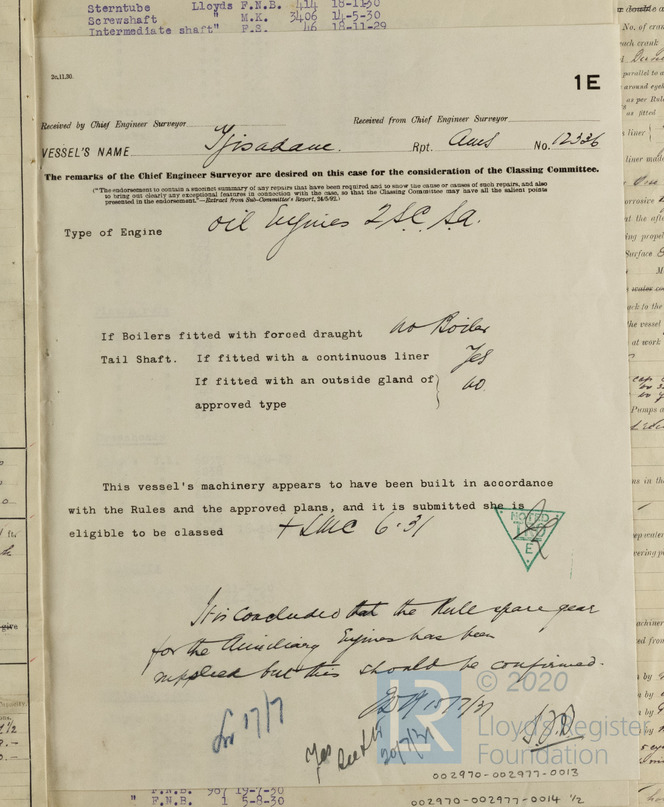 Sterntube Lloyds F.N.B. 414 18-11-30
Screwshaft " M.K. 3406 14-5-30
Intermediate shaft" F.S. 46 18-11-29
2c.11.30.
1E
Received by Chief Engineer Surveyor
Received from Chief Engineer Surveyor
VESSEL'S NAME Tjisadane. Rpt. Ams No. 12336
The remarks of the Chief Engineer Surveyor are desired on this case for the consideration of the Classing Committee.
("The endorsement to contain a succinct summary of any repairs that have been required and to show the cause or causes of such repairs, and also
to bring out clearly any exceptional features in connection with the case, so that the Classing Committee may have all the salient points
presented in the endorsement."—Extract from Sub-Committee's Report, 24/5/92.)
Type of Engine Oil Engines 2 S.C. S.A.
If Boilers fitted with forced draught no Boiler
Tail Shaft. If fitted with a continuous liner Yes
If fitted with an outside gland of } no.
approved type
This vessel's machinery appears to have been built in accordance
with the Rules and the approved plans, and it is submitted she is
eligible to be classed + LMC 6.31
NOTED
E
It is concluded that the Rule spare gear
for the Auxiliary Engines has been
supplied but this should be confirmed.
17/7
15/7/31
Yes
20/7/31
© 2020
LR
Lloyd's Register
Foundation
002970-002977-0013
F.N.B. 987 19-7-30
" F.N.B. 1 5-8-30
002970-002977-0014 1/2